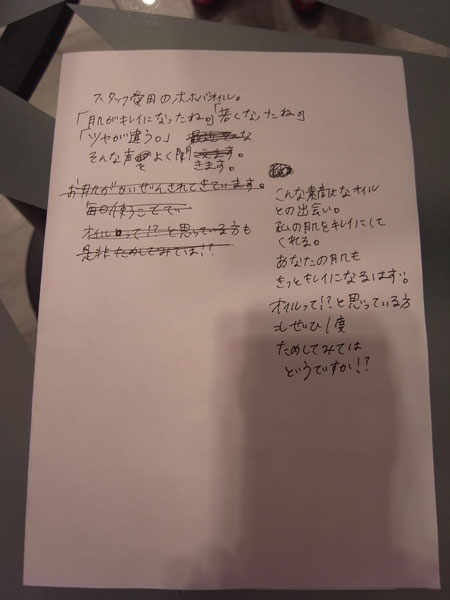 スタッフ愛用のホホバオイル。
「肌がキレイになったね。」「若くなったね。」
「ツヤが違う。」
そんな声もよく聞こえます。
きます。
お肌がかいぜんされてきています。
毎日使うことで
オイルって!?と思っている方も
是非ためしてみては!?
こんな素敵なオイル
との出会い。
私の肌をキレイにして
くれる。
あなたの肌も
きっとキレイになるはず。
オイルって!?と思っている方
もぜひ1度
ためしてみては
どうですか!?